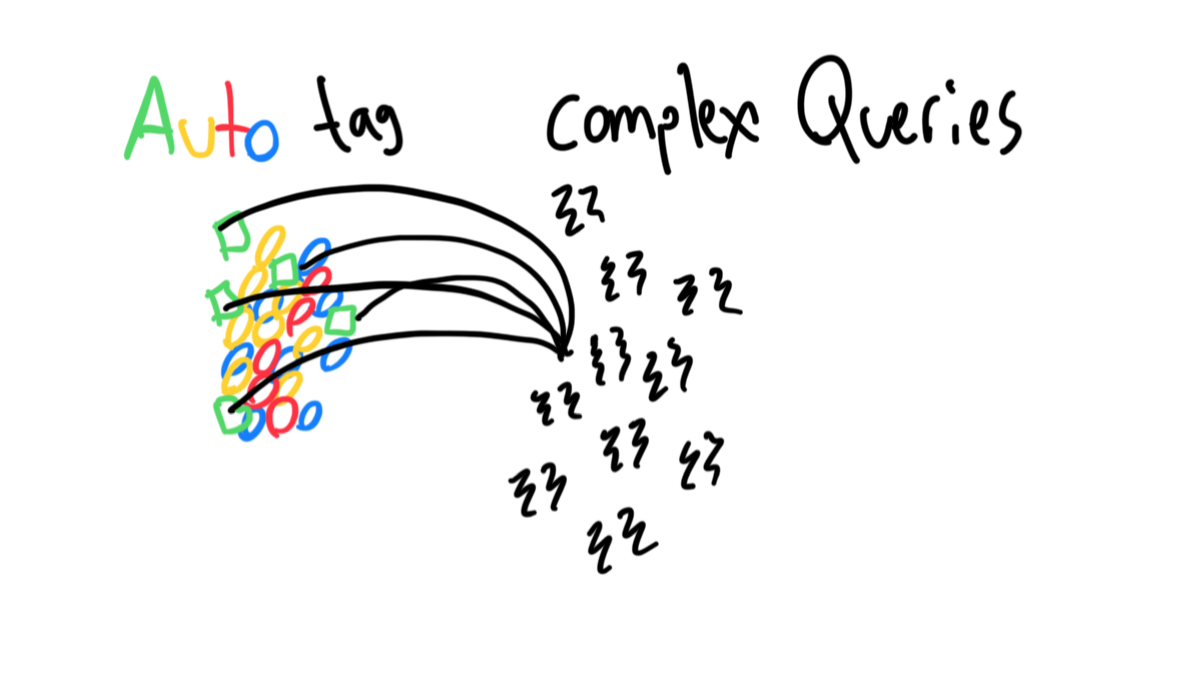 Auto tag complex Queries